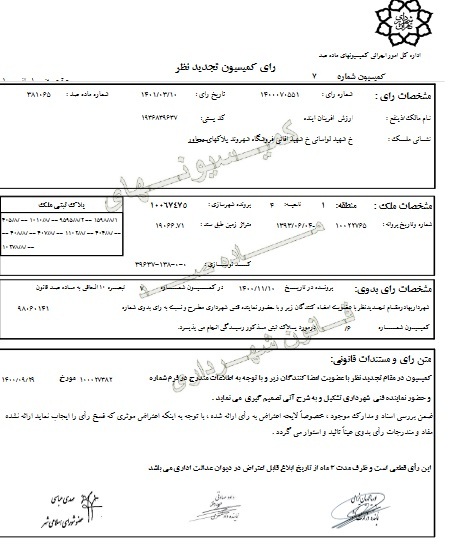 اداره کل امور اجرائی کمیسیونهای ماده صد
رای کمیسیون تجدید نظر
کمیسیون شماره ۷
مشخصات رای : شماره رای : ۱۴۰۰۰۷۰۵۵۱ تاریخ رای : ۱۴۰۱/۰۳/۱۰ شماره ماده صد : ۳۸۱۰۶۵
نام مالک/ذینفع : ارزش افرینان اینده کد پستی: ۱۹۳۶۸۳۹۶۳۷
نشانی ملک : خ شهید لواسانی خ شهید آقائی فروشگاه شهروند پلاکهای
مشخصات ملک : منطقه: ۱ ناحیه: ۴ پرونده شهرسازی: ۱۰۰۶۷۴۷۵
پلاک ثبتی ملک
شماره وتاریخ پروانه : ۱۰۰۲۲۷۶۵ ۱۳۹۳/۰۶/۰۴ متراژ زمین طبق سند : ۱۹۰۶۶.۷۱
کد نوسازی : ۰-۰-۱۳۸-۳۹۶۳۷
مشخصات رای بدوی: پرونده در تاریخ ۱۴۰۰/۱۱/۱۰ در کمیسیون شماره ۷ تبصره ۱۰ الحاقی به ماده صد قانون
شهرداریها درمقام تجدیدنظر با عضویت امضاء کنندگان زیر و با حضور نماینده فنی شهرداری مطرح و نسبت به رای بدوی شماره ۹۸۰۶۰۱۴۱
کمیسیون شماره ۶ درمورد پلاک ثبتی مذکور رسیدگی انجام می پذیرد.
متن رای و مستندات قانونی:
کمیسیون در مقام تجدید نظر با عضویت امضا کنندگان زیر و با توجه به اطلاعات مندرج در فرم شماره ۱۰۰۰۲۷۳۸۲ مورخ ۱۴۰۰/۰۹/۲۹
و حضور نماینده فنی شهرداری تشکیل و به شرح آتی تصمیم گیری می نماید .
ضمن بررسی اسناد و مدارک موجود ، خصوصاً لایحه اعتراض به رأی ارائه شده ، با توجه به اینکه اعتراض موثری که فسخ رأی را ایجاب نماید ارائه نشده
مفاد و مندرجات رأی بدوی عیناً تائید و استوار می گردد .
این رأی قطعی است و ظرف مدت ۳ ماه از تاریخ ابلاغ قابل اعتراض در دیوان عدالت اداری می باشد
مهدی عباسی
عضو شورای اسلامی شهر
کمیسیونهای
ماده صد
قانون شهرداری